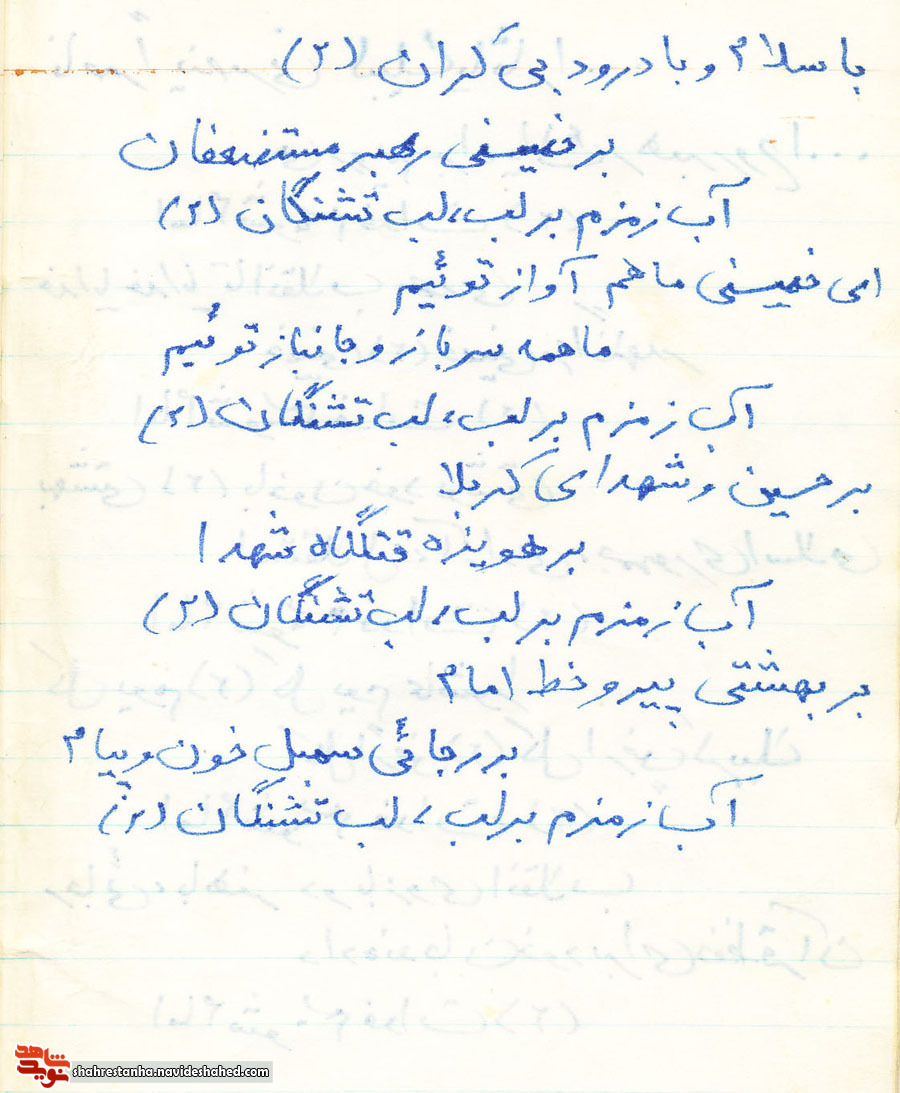 با سلام و با درود بی کران (۲)
بر خمینی رهبر مستضعفان
آب زمزم بر لب، لب تشنگان (۲)
ای خمینی ما هم آواز توئیم
ما همه سرباز و جانباز توئیم
آب زمزم بر لب، لب تشنگان (۲)
بر حسین و شهدای کربلا
بر هویزه قتلگاه شهدا
آب زمزم بر لب، لب تشنگان (۲)
بر بهشتی پیرو خط امام
بر رجائی سمبل خون و پیام
آب زمزم بر لب، لب تشنگان (۲)
نوید شاهد
shahrestanha.navideshahed.com